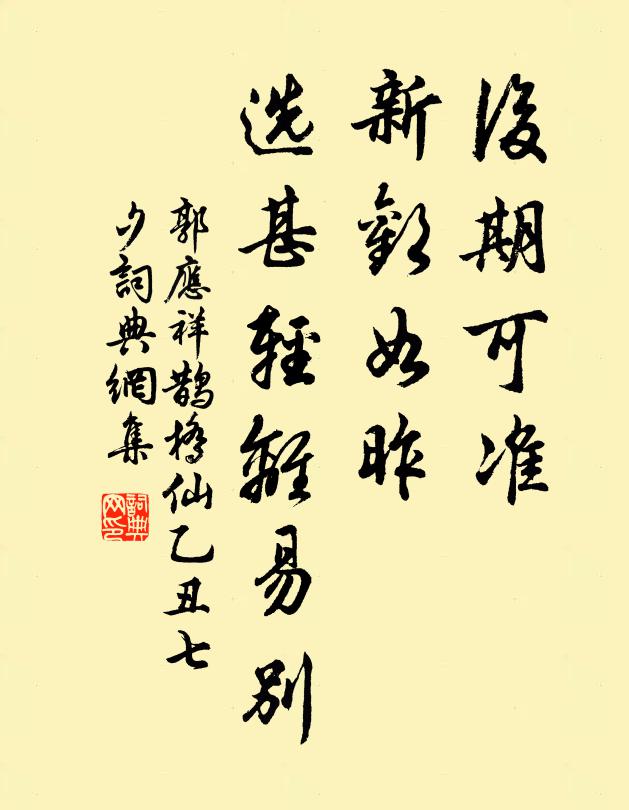 後期可准
新歡如昨
选甚輕離易别
郭應祥鵲橋仙乙丑七
夕詞典網集
詞典网印